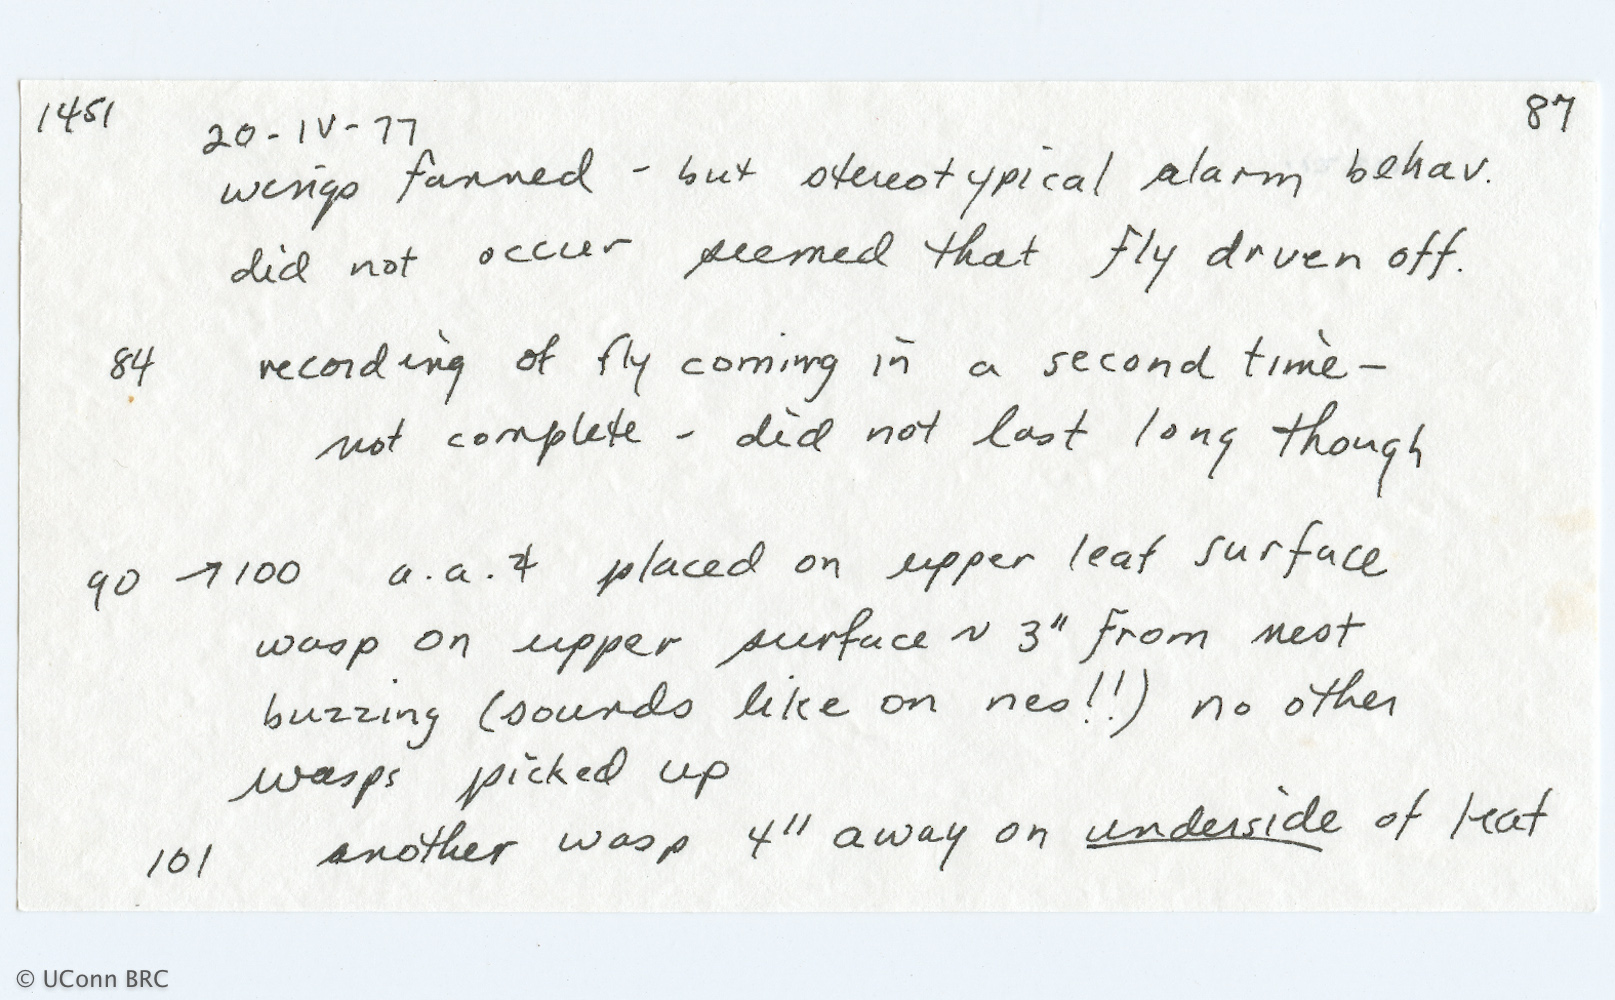 1451 87
20-IV-77
wings fanned - but stereotypical alarm behav.
did not occur seemed that fly driven off.
84 recording of fly coming in a second time -
not complete - did not last long though
90 → 100 a.a. placed on upper leaf surface
wasp on upper surface ~ 3" from nest
buzzing (sounds like on nes!!) no other
wasps picked up
101 another wasp 4" away on underside of leaf
© UConn BRC